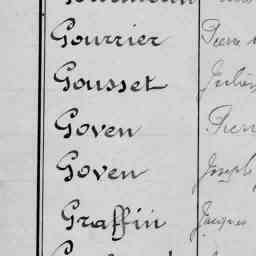 Gourrier Pierre
Gousset Julien
Goven Pierre
Goven Joseph
Graffin Jacques